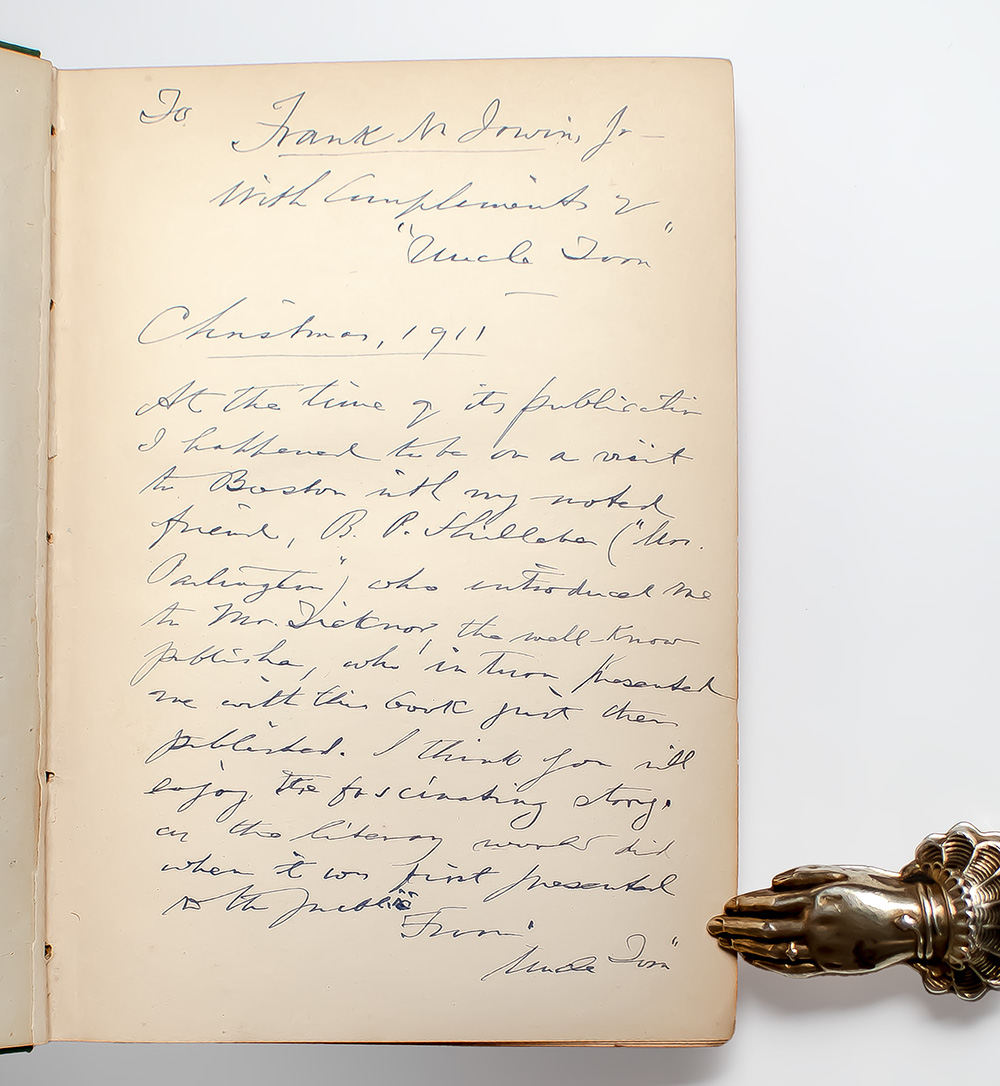 To
Frank N Irwin, Jr —
With Compliments of
"Uncle Tom"
Christmas, 1911
At the time of its publication
I happened to be on a visit
to Boston with my noted
friend, B. P. Shillaber ("Mrs.
Partington") who introduced me
to Mr. Ticknor, the well-know
publisher, who in turn presented
me with this book just then
published. I think you will
enjoy the fascinating story,
as the literary world did
when it was first presented
to the public
"From"
Uncle Tom"